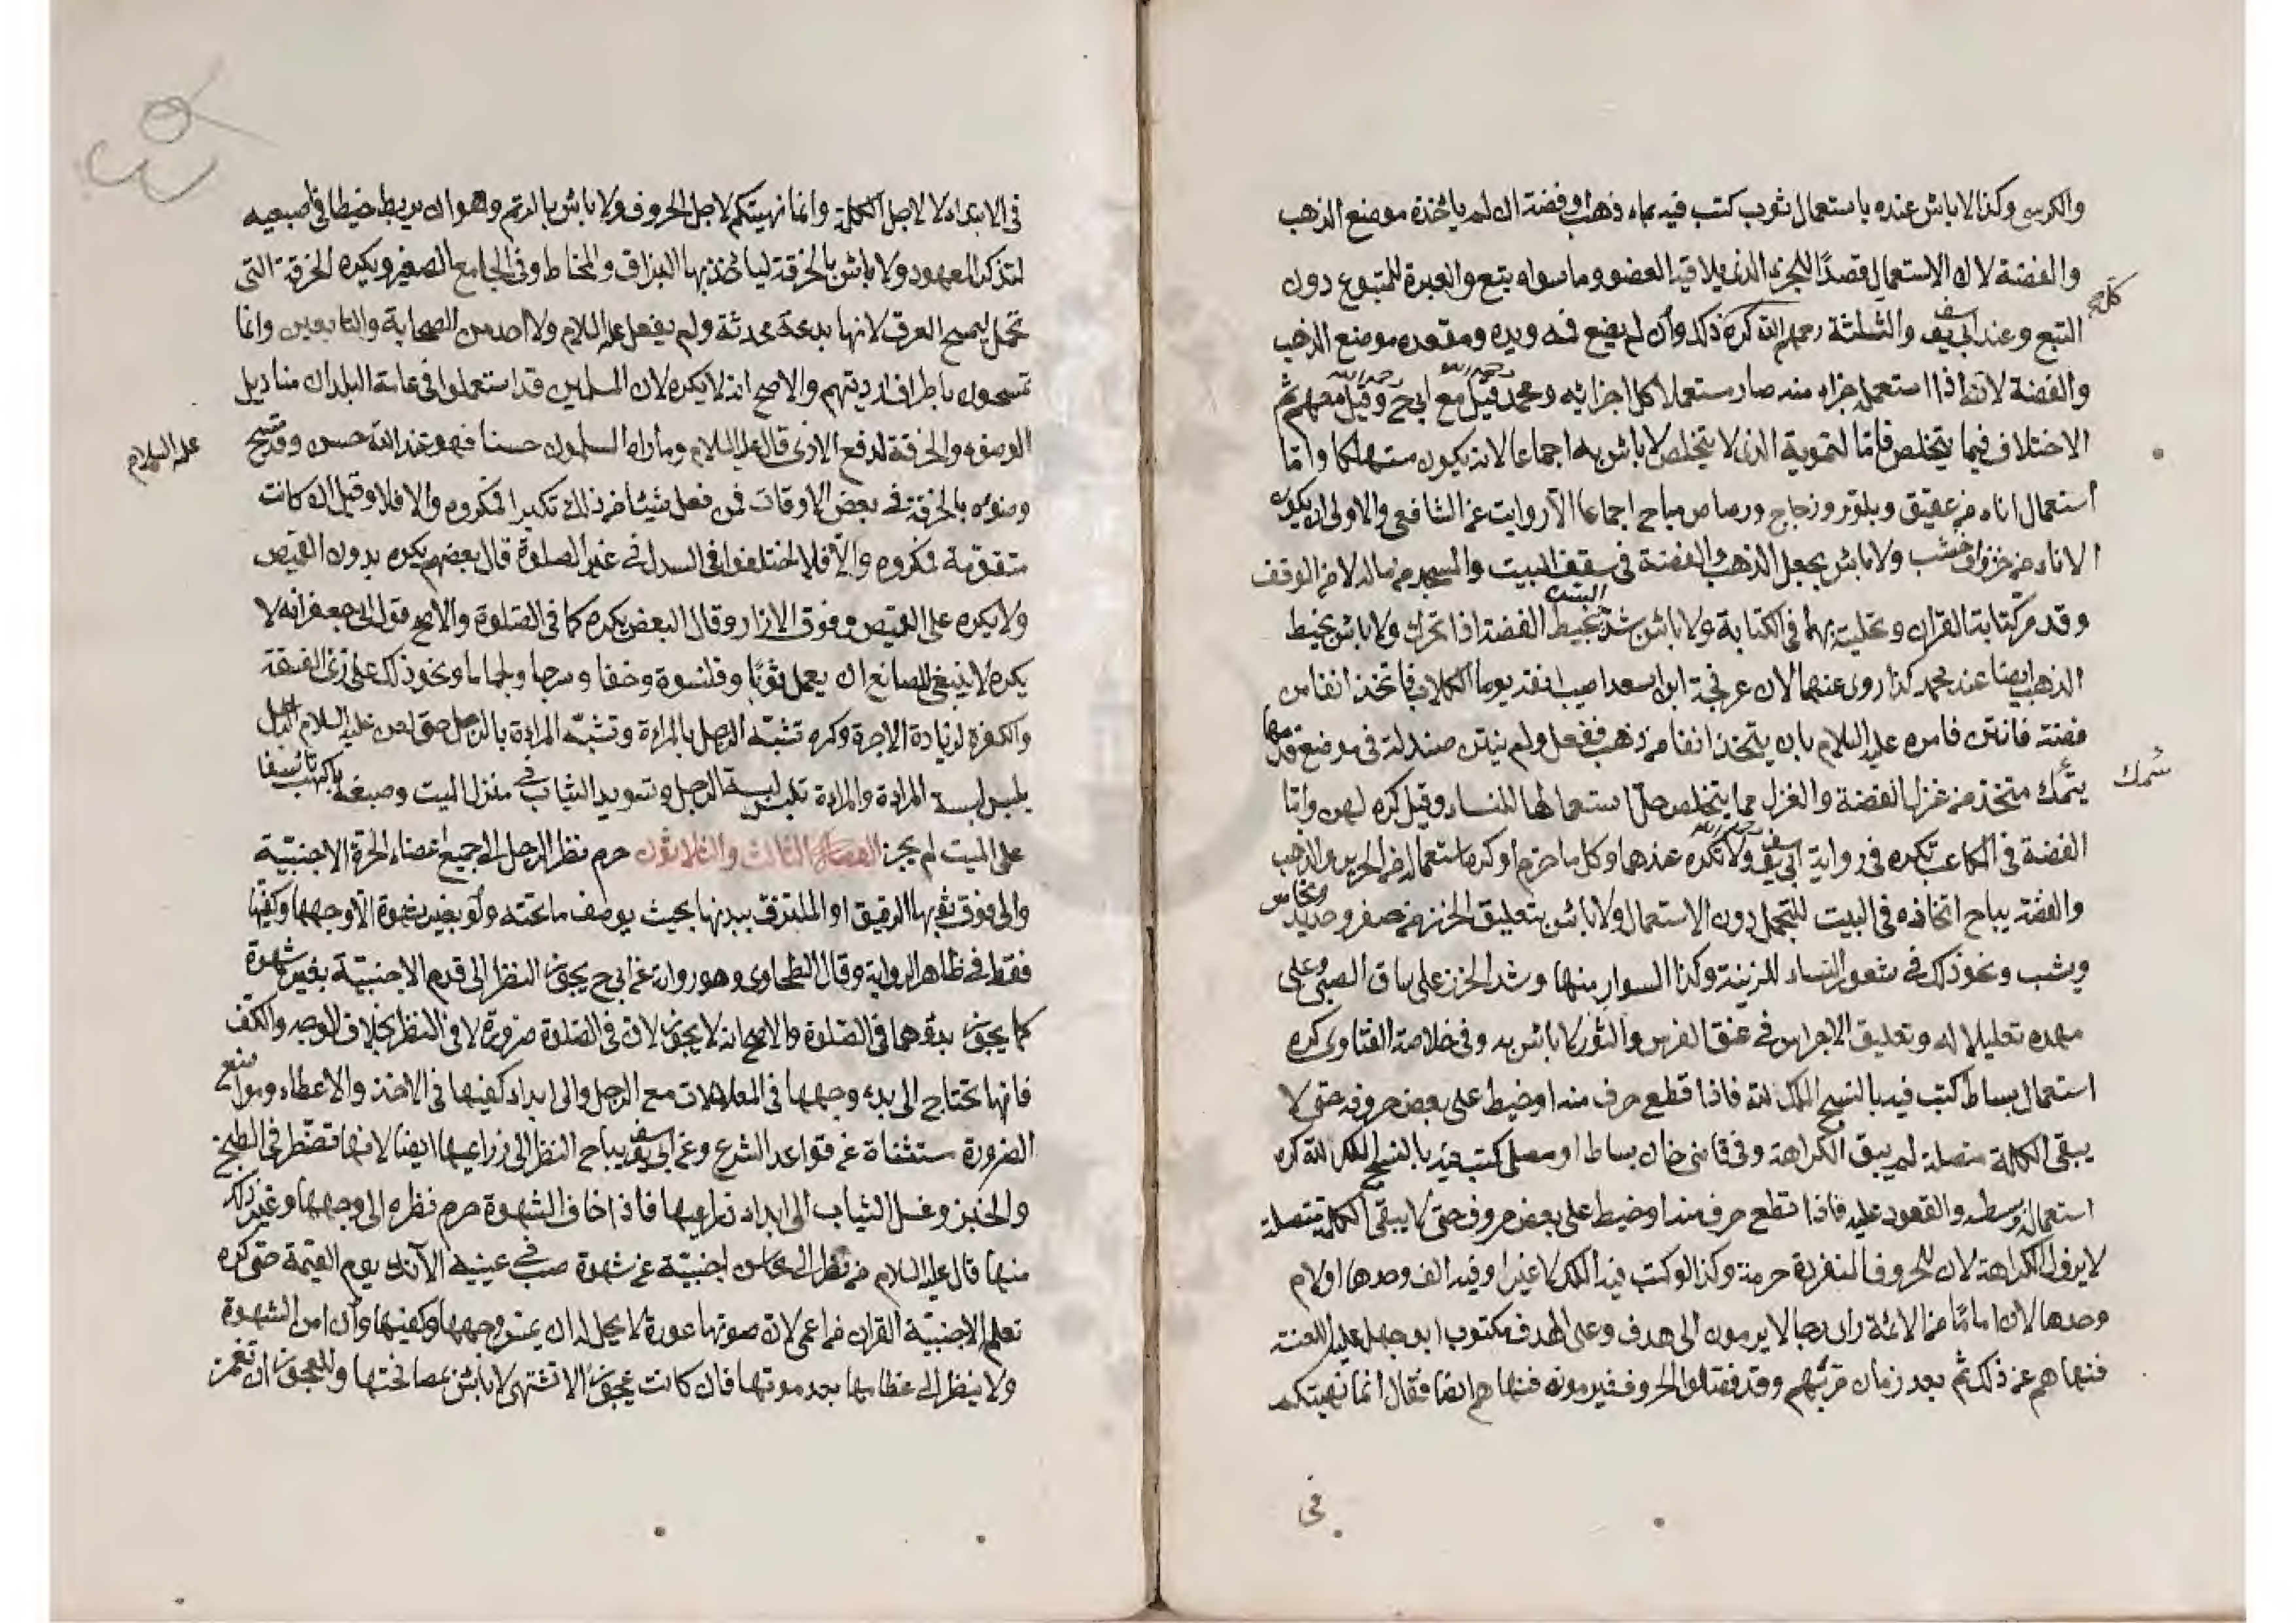 والكرسى وكذا لا باس عنده باستعمال ثوب كتب فيه بماء ذهب او فضة ان لم ياخذه موضع الذهب
والفضة لان الاستعمال قصدًا للجزء الذى يلاقيه العضو وما سواه يتبع والعبرة للمتبوع دون
التبع وعند ابى يوسف والثلثة رحمهم الله كره ذلك وان لم يضع فمه ويده ومقعده موضع الذهب
والفضة لانه اذا استعمل جزاء منه صار مستعملا كل اجزائه ومحمد قيل مع ابى ح وقيل معهم ثم
رحمه الله رحمه الله
الاختلاف فيما يتخلص فاما التموية الذى لا يتخلص لا باس به اجماعا لانه يكون مستهلكا واما
استعمال اناء من عقيق وبلور وزجاج ورصاص مباح اجماعا الا روايت عن الشافعى والاولى ان يكون
الاناء من خزف او خشب ولا باس بجعل الذهب والفضة فى سقف البيت والمسجد من ماله لا من الوقف
وقد مر كتابة القران وتحليته بهما فى الكتابة ولا باس بشد السن بخيط الفضة اذا تحرك ولا باس بخيط
الذهب ايضا عند محمد كذا روى عنهما لان عرفجة ابن اسعد اصيب انفه يوم الكلاب فاتخذ انفا من
فضة فانتن فامره عليه السلام بان يتخذ انفا من ذهب ففعل ولم ينتن صندلة فى موضع قدمها
سمك
يتمك متخذ من غزل الفضة والغزل مما يتخلص حل استعمالها للنساء وقيل كره لهن واما
الفضة فى المكاعب تكره فى رواية ابى يوسف ولا تكره عندهما وكل ما حرم او كره استعماله من الحرير والذهب
والفضة يباح اتخاذه فى البيت للتجمل دون الاستعمال ولا باس بتعليق الخرز من صفر وحديد ونحاس
وشب ونحو ذلك فى شعور النساء للزينة وكذا السوار منها وشد الخرز على ساق الصبى وعلى
مهده تعليلا له وتعليق الاجراس فى عنق الفرس والثور لا باس به وفى خلاصة الفتاوى كره
استعمال بساط كتب فيه بالنسج الملك لله فاذا قطع حرف منه او خيط على بعض حروفه حتى لا
يبقى الكلمة متصلة لم يبق الكراهة وفى قاضى خان بساط او مصلى كتب فيه بالنسج الملك لله كره
استعماله وبسطه والقعود عليه فاذا قطع حرف منه او خيط على بعض حروف حتى لا يبقى الكلمة متصلة
لا يزول الكراهة لان للحروف المنفردة حرمة وكذا لو كتب فيه الملك لا غير او فيه الف وحدها او لام
وحدها لان اماما من الائمة راى رجالا يرمون الى هدف وعلى الهدف مكتوب ابو جهل عليه اللعنة
فنهاهم عن ذلك ثم بعد زمان مر بهم وقد فصلوا الحروف فيرمونه فنهاهم ايضا فقال انما نهيتكم
فى
فى الابتداء لا لاجل الكلمة وانما نهيتكم لاجل الحروف ولا باس بالرتم وهو ان يربط خيطا فى اصبعيه
لتذكر المعهود ولا باس بالخرقة لياخذ بها البزاق والمخاط وفى الجامع الصغير ويكره الخرقة التى
تحمل ليمسح العرق لانها بدعة محدثة ولم يفعل عليه السلام ولا احد من الصحابة والتابعين وانما
تمسحون باطراف ارديتهم والاصح انه لا يكره لان المسلمين قد استعملوا فى عامة البلدان مناديل
الوضوء والخرقة لدفع الاذى قال عليه السلام وما راه المسلمون حسنا فهو عند الله حسن وقد مسح
عليه السلام
وضوئه بالخرقة فى بعض الاوقات فمن فعل شيئا من ذلك تكبرا فمكروه والا فلا وقيل ان كانت
متقومة فمكروه والا فلا اختلفوا فى السدل فى غير الصلوة قال بعضهم يكره بدون القميص
ولا يكره على القميص وفوق الازار وقال البعض يكره كما فى الصلوة والاصح قول ابى جعفر انه لا
يكره لا ينبغى للصانع ان يعمل ثوبا وقلنسوة وخفا وسرجا ولجاما ونحو ذلك على زى الفسقة
والكفرة لزيادة الاجرة وكره تشبه الرجل بالمراءة وتشبه المراءة بالرجل حتى لعن عليه السلام الرجل
يلبس لبسة المراءة والمراءة تلبس لبسة الرجل وتسويد الثياب فى منزل الميت وصبغه باكهب تاسفا
على الميت لم يجز الفصل الثالث والثلاثون حرم نظر الرجل الى جميع اعضاء الحرة الاجنبية
والى فوق ثوبها الرقيق او الملتزق ببدنها بحيث يوصف ما تحته ولو بغير شهوة الا وجهها وكفيها
فقط فى ظاهر الرواية وقال الطحاوى وهو رواية عن ابى ح يجوز النظر الى قدم الاجنبية بغير شهوة
كما يجوز بدوهما فى الصلوة والاصح انه لا يجوز لان فى الصلوة ضرورة لا فى النظر بخلاف الوجه والكف
فانها تحتاج الى بدء وجهها فى المعاملات مع الرجل والى ابداء كفيها فى الاخذ والاعطاء ومواضع
الضرورة مستثناة عن قواعد الشرع وعن ابى يوسف يباح النظر الى ذراعيها ايضا لانها تضطر فى الطبخ
والخبز وغسل الثياب الى ابداء ذراعيها فاذا خاف الشهوة حرم نظره الى وجهها وغير ذلك
منها قال عليه السلام من نظر الى محاسن اجنبية عن شهوة صب فى عينيه الآنك يوم القيمة حتى كره
تعلم الاجنبية القران من اعمى لان صوتها عورة لا يحل له ان يمس وجهها وكفيها وان امن الشهوة
ولا ينظر الى عظامها بعد موتها فان كانت عجوزا لا تشتهى لا باس بمصافحتها وللعجوز ان تغمز